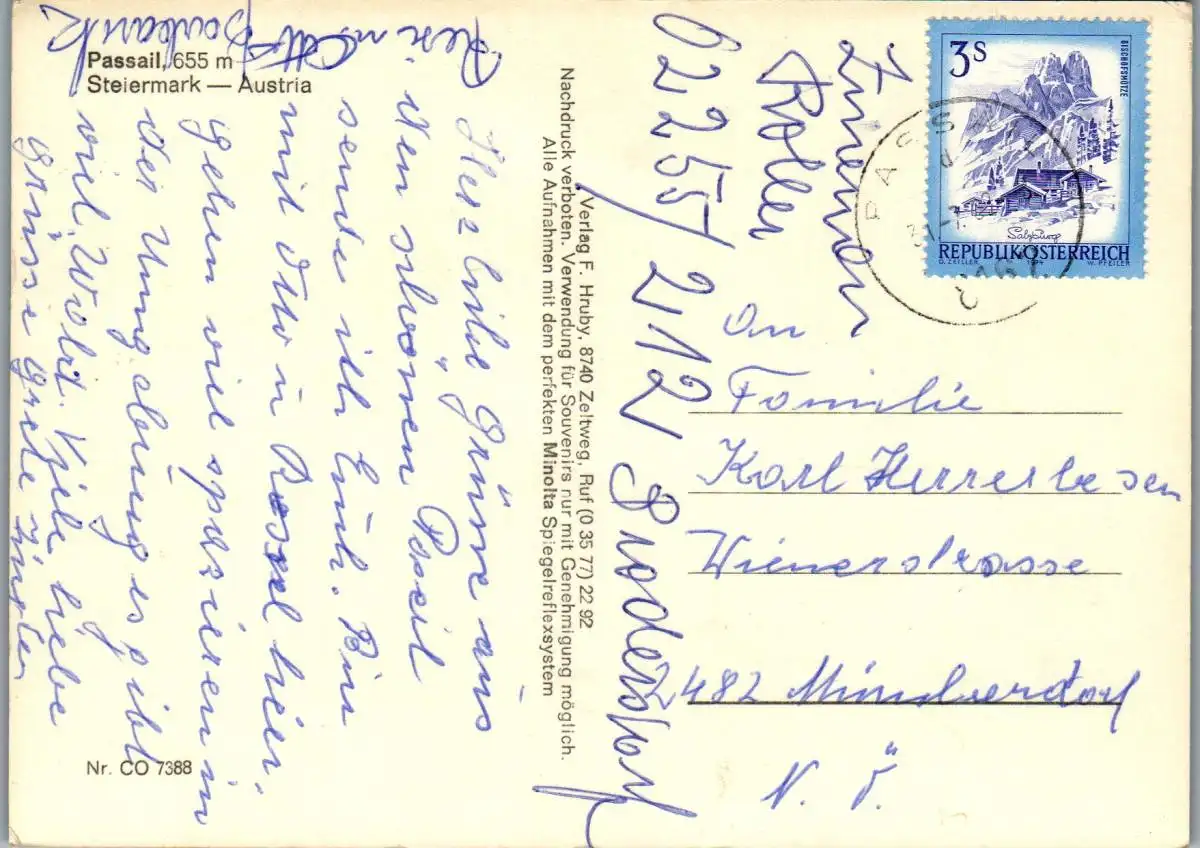 Passail, 655 m
Steiermark — Austria
Herzliche Grüsse aus
den schönen Passeil
sende ich Euch. Bin
mit Otto in Rossl hier.
gehen viel spazieren in
der Umgebung es gibt
viel Wild. Viele liebe
Grüsse
Resi u Otto
Nr. CO 7388
Verlag F. Hruby, 8740 Zeltweg, Ruf (0 35 77) 22 92
Nachdruck verboten. Verwendung für Souvenirs nur mit Genehmigung möglich.
Alle Aufnahmen mit dem perfekten Minolta Spiegelreflexsystem
Roller
62255/212 Prodersdorf
3S
BISCHOFSMÜTZE
Salzburg
REPUBLIK ÖSTERREICH
O. ZEILLER 1974 W. PFEILER
PASSAIL
8162
An
Familie
Karl Herrerlesen
Wienerstrasse
2482 Münchendorf
N.Ö.